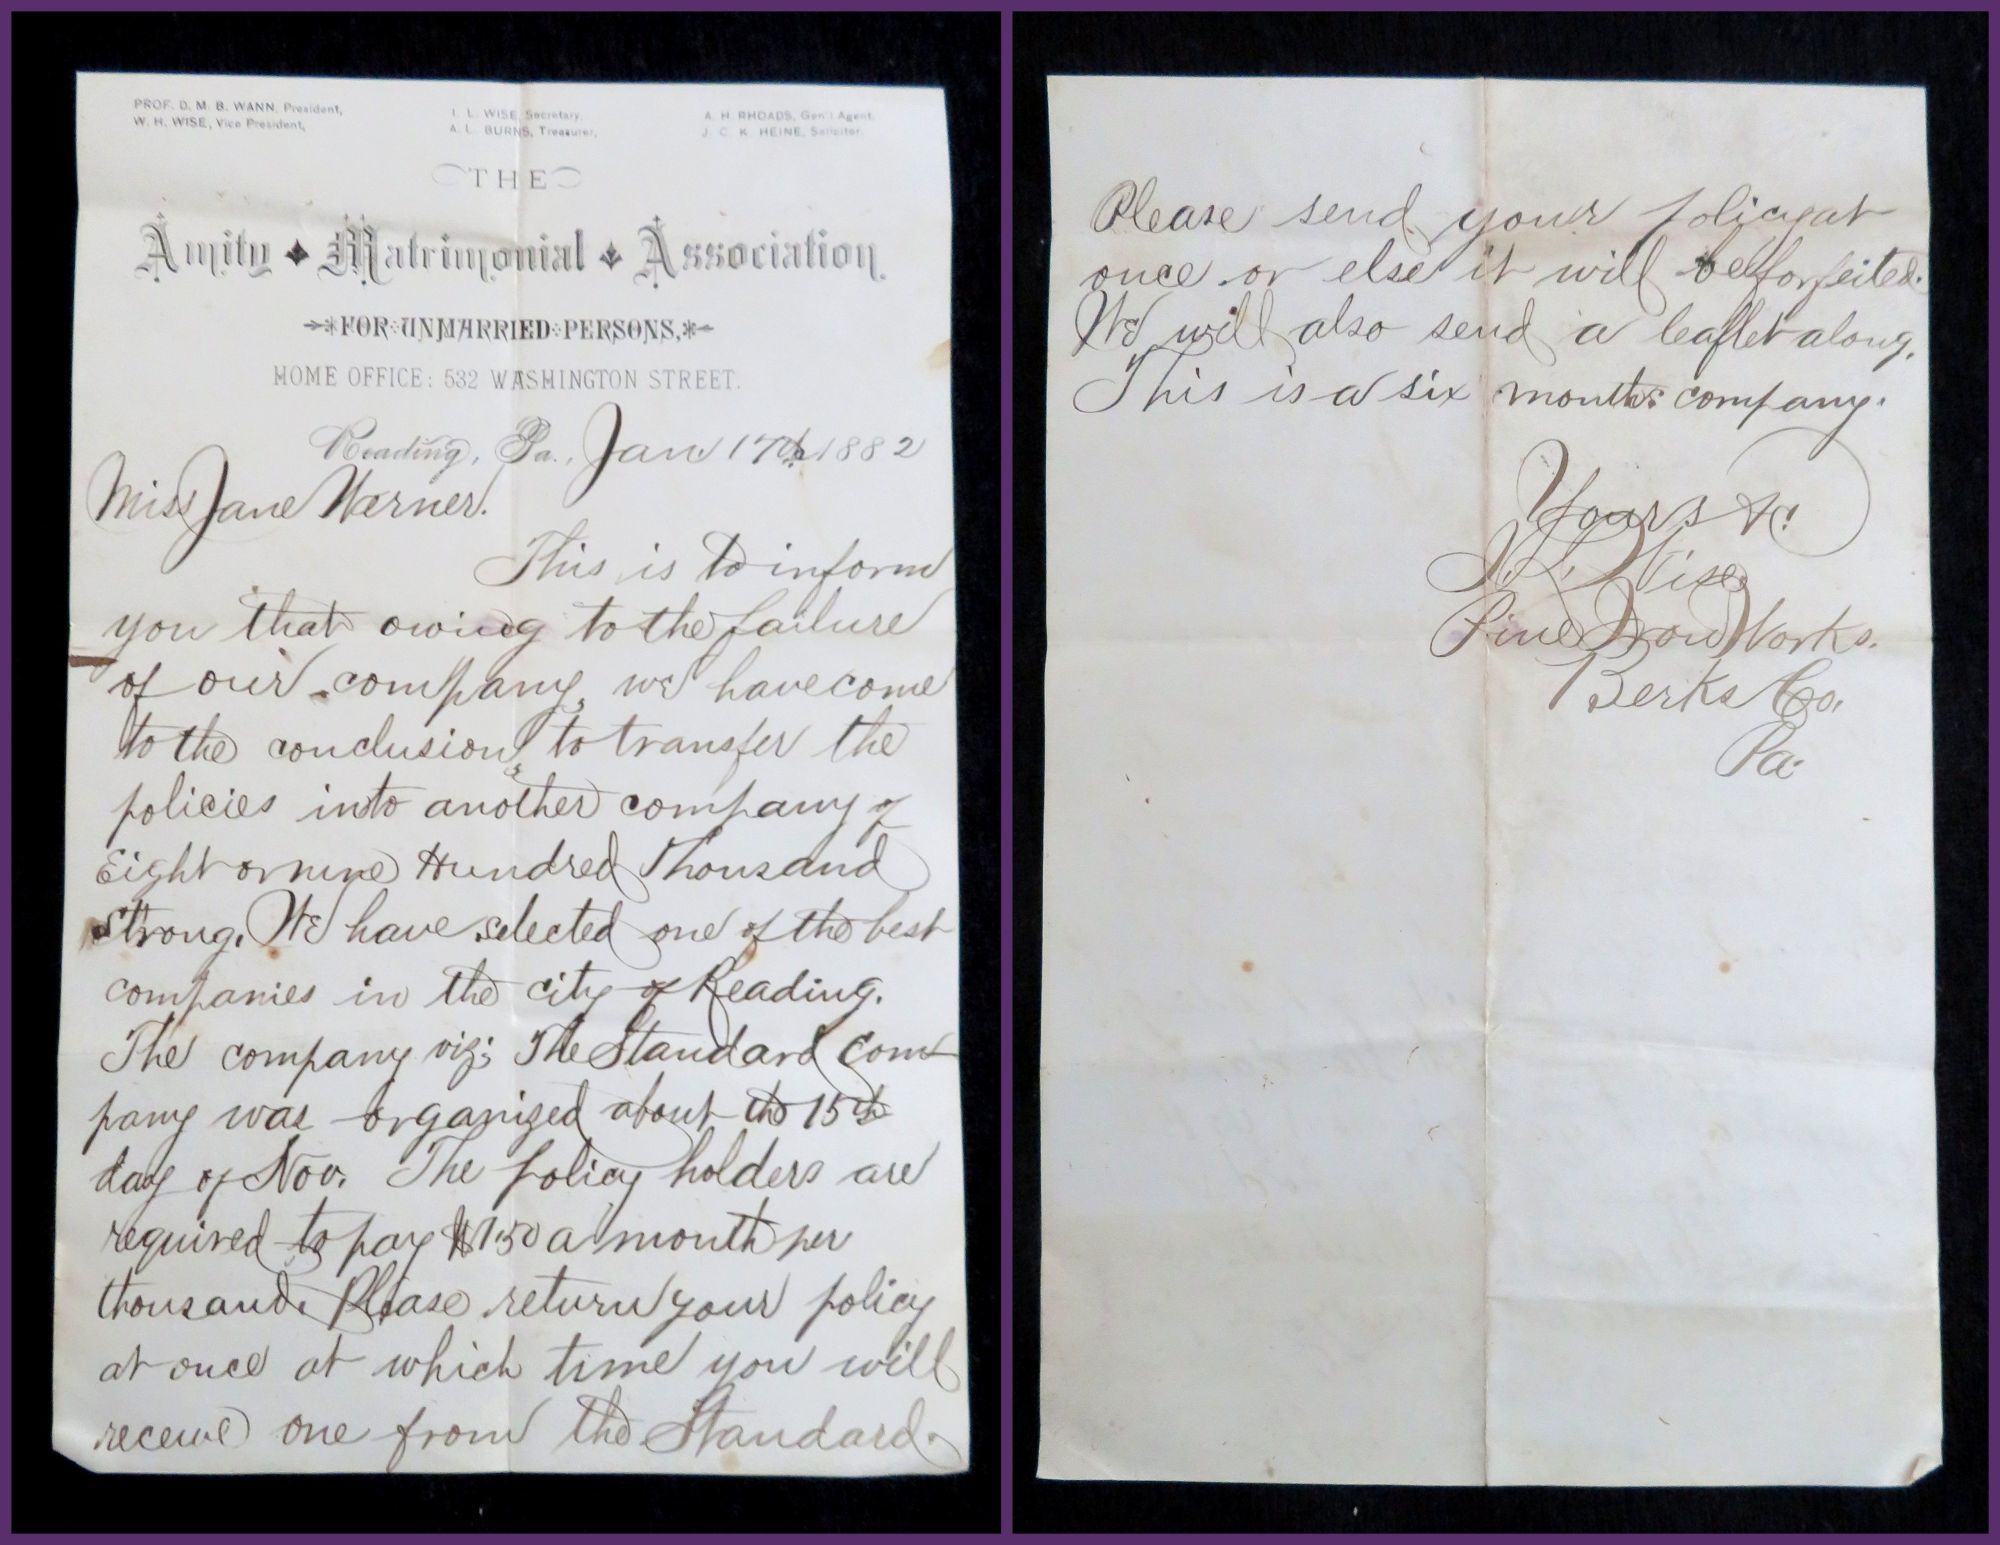 PROF. D. M. B. WANN, President,
W. H. WISE, Vice President,
I. L. WISE, Secretary,
A. L. BURNS, Treasurer,
A. H. RHOADS, Gen'l Agent,
J. C. K. HEINE, Solicitor.
THE
Amity Matrimonial Association
FOR UNMARRIED PERSONS,
HOME OFFICE: 532 WASHINGTON STREET.
Reading, Pa., Jan 17th 1882
Miss Jane Werner.
This is to inform
you that owing to the failure
of our company, we have come
to the conclusion, to transfer the
policies into another company of
Eight or nine Hundred Thousand
Strong. We have selected one of the best
companies in the city of Reading.
The company viz; The Standard Com-
pany was organized about the 15th
day of Nov. The policy holders are
required to pay $1.50 a month per
thousand. Please return your policy
at once at which time you will
receive one from the Standard.
Please send your policy at
once or else it will be forfeited.
We will also send a leaflet along.
This is a six months company.
Yours &c.
I. L. Wise
Pine Iron Works.
Berks Co.
Pa.